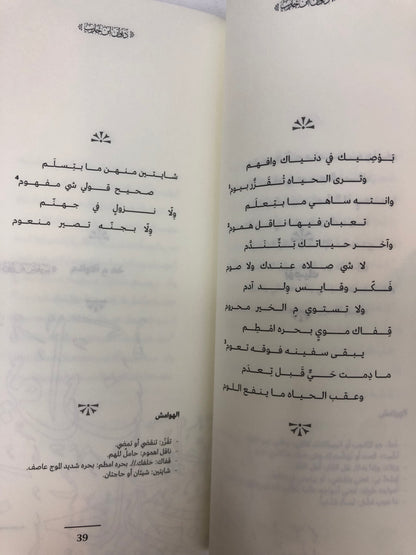 بَوْصِيك في دنياك وافهم
وترى الحياه تْقَزّر بيوم¹
وانته ساهي ما بتِعلَم
تعبان فيها ناقل هموم²
وآخر حياتك بَتّندَّم
لا شي صلاه عندك ولا صوم
فكّر وقايس ولد آدم
ولا تستوي مِ الخير محروم
قِفاك مويٍ بحره امْطِم
يبقى سفينه فوقه تعوم³
ما دمت حيٍّ قبل تِعدَم
وعقب الحياه ما ينفع اللوم
ديوان ابن
شابتين منهن ما بتِسلَم
صحيح قولي شي مفهوم⁴
ولّا نزولٍ في جهنّم
ولّا بجنّه تصير منعوم
الهوامش
- تقزّر: تنقضي أو تمضي.
- ناقل اهموم: حامل للهم.
- قفاك: خلفك.// بحره امطم: بحره شديد الموج عاصف.
- شابتين: شيئان أو حاجتان.
39